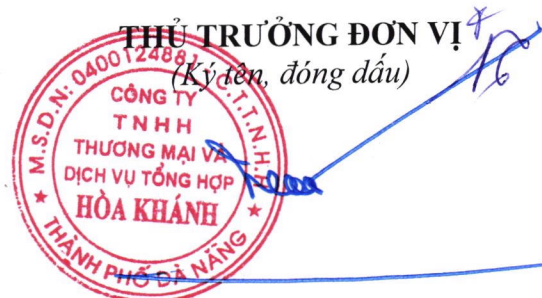 THỦ TRƯỞNG ĐƠN VỊ
(Ký tên, đóng dấu)
M.S.D.N: 040012488
C.T.T.N.H.H
CÔNG TY
TNHH
THƯƠNG MẠI VÀ
DỊCH VỤ TỔNG HỢP
HÒA KHÁNH
THÀNH PHỐ ĐÀ NẴNG